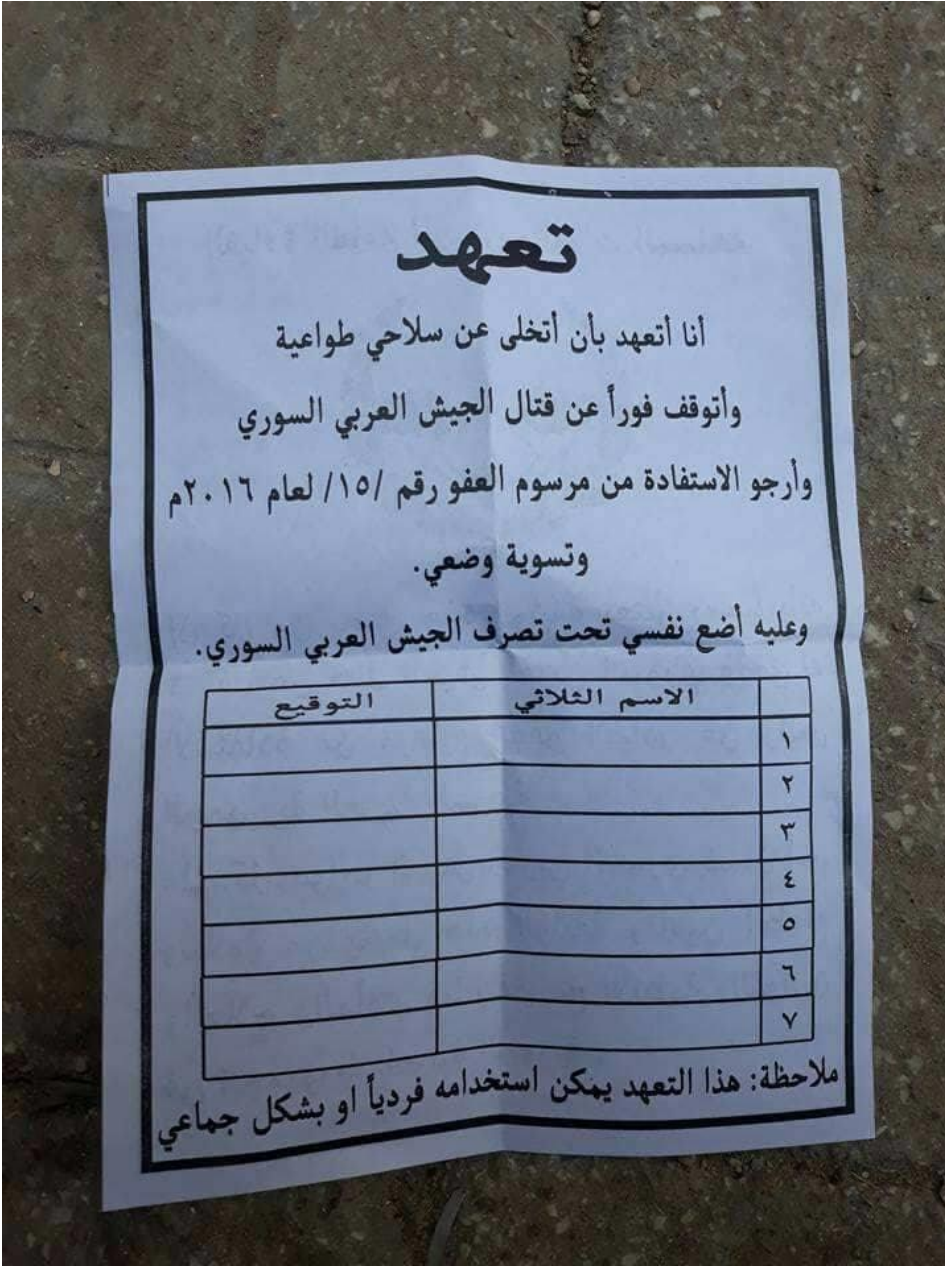 تعهد
أنا أتعهد بأن أتخلى عن سلاحي طواعية
وأتوقف فوراً عن قتال الجيش العربي السوري
وأرجو الاستفادة من مرسوم العفو رقم /١٥/ لعام ٢٠١٦م
وتسوية وضعي.
وعليه أضع نفسي تحت تصرف الجيش العربي السوري.
الاسم الثلاثي التوقيع
١
٢
٣
٤
٥
٦
٧
ملاحظة: هذا التعهد يمكن استخدامه فردياً او بشكل جماعي